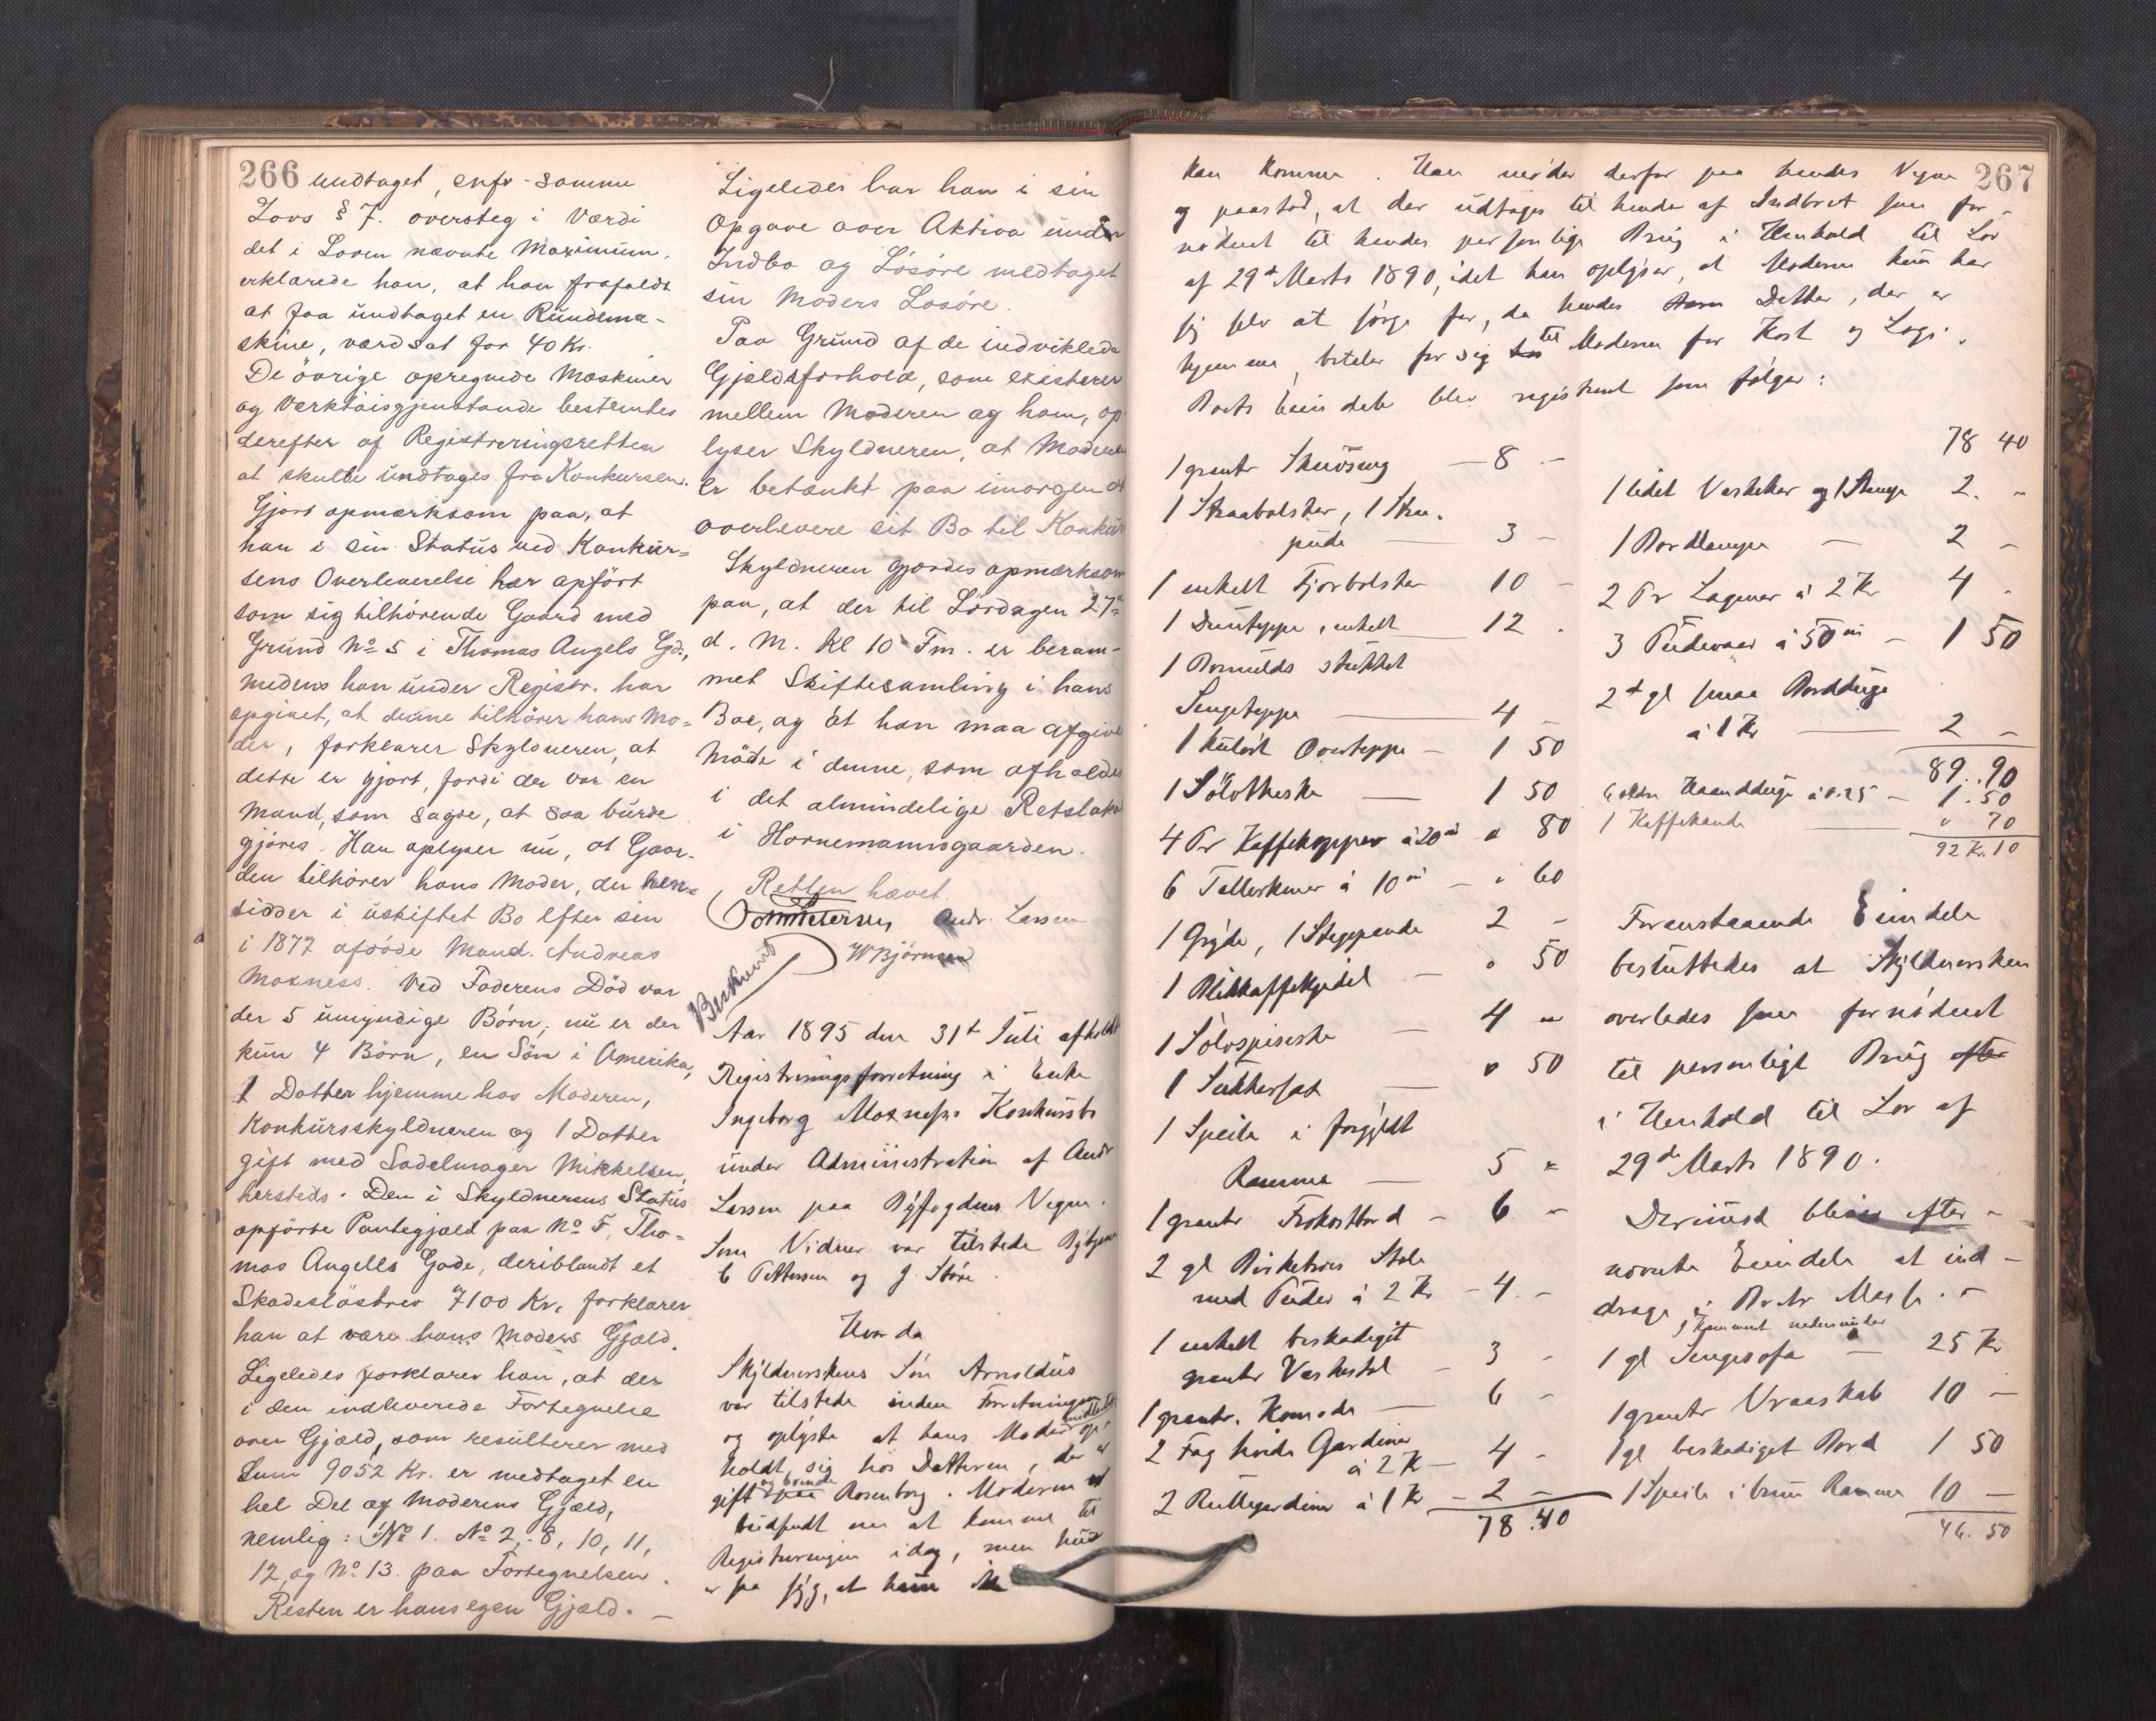 266 undtaget, cnfr - samme
Lovs § 7. oversteg i Værdi
det i Loven nævnte Maximum,
erklærede han, at han frafaldt
at faa undtaget en Rundema-
skine, værdsat for 40 Kr.
De övrige opregnede Maskiner
og Værktöisgjenstande bestemtes
derefter af Registreringsretten
at skulle undtages fra Konkursen.
Gjort opmærksom paa, at
han i sin Status ved Konkur-
sens Overleverelse har opfört
som sig tilhörende Gaard med
Grund No 5 i Thomas Angels Gd.,
medens han under Registr. har
opgivet, at denne tilhörer hans Mo-
der, forklarer Skyldneren, at
dette er gjort, fordi der var en
Mand, som sagde, at saa burde
gjöres. Han oplyser nu, at Gaar-
den tilhörer hans Moder, der hen-
sidder i uskiftet Bo efter sin
i 1877 afdöde Mand. Andreas
Moxness. Ved Faderens Död var
der 5 umyndige Börn, nu er der
kun 4 Börn, en Sön i Amerika,
1 Datter hjemme hos Moderen,
Konkursskyldneren og 1 Datter
gift med Sadelmager Mikkelsen,
hersteds. Den i Skyldnerens Status
opförte Pantegjæld paa No 5, Tho-
mas Angells Gade, deriblandt et
Skadeslösbrev 7100 Kr, forklarer
han at være hans Moders Gjæld.
Ligeledes forklarer han, at der
i den indleverede Fortegnelse
over Gjæld, som resulterer med
Sum 9052 Kr. er medtaget en
hel Del af Moderens Gjæld,
nemlig: No 1. No 2, 8, 10, 11,
12, og No 13. paa Fortegnelsen.
Resten er hans egen Gjæld. -
Ligeledes har han i sin
Opgave over Aktiva under
Indbo og Lösöre medtaget
sin Moders Lösöre.
Paa Grund af de indviklede
Gjældsforhold, som existerer
mellem Moderen og ham, op-
lyser Skyldneren, at Moderen
er betænkt paa imorgen at
overlevere sit Bo til Konkurs
Skyldneren gjordes opmærksom
paa, at der til Lördagen 27de
d. M. Kl 10 Fm. er beram-
met Skiftesamling i hans
Boe, og at han maa afgive
Möde i denne, som afholdes
i det almindelige Retslokal
i Hornemannsgaarden.
Retten hævet
Andr. Larsen
W Björnsen
Beskrevet
Aar 1895 den 31t Juli afholdt
Registreringsforretning i Enke
Ingeborg Moxness Konkursbo
under Administration af Andr
Larsen paa Byfogdens Vegne.
Som Vidner var tilstede
C Pettersen og J. Störe.
Hvorda
Skyldnerskens Sön Arnoldus
var tilstede under Forretningen
og oplyste at hans Moder
holdt sig hos Datteren, der er
gift og boende paa Rosenborg. Moderen er
budsendt om at komme til
Registreringen idag, men hun
er saa syg, at hun ikke
267
kan komme. Han möder derfor paa hendes Vegne
og paastod, at der udtages til hende af Indboet som for-
nödent til hendes personlige Brug i Henhold til Lov
af 29de Marts 1890, idet han oplyser, at Moderen kun har
sig selv at sörge for, da hendes Datter, der er
hjemme, betaler for sig til Moderen for Kost og Logi.
Boets Eiendele blev registreret som fölger:
1 grantr Skuvseng — 8 -
1 Straabolster, 1 Straa-
pude — 3 -
1 enkelt Fjærbolster 10 -
1 Duntæppe, enkelt 12 -
1 Bomulds strikket
Sengetæppe — 4 -
1 kulört Overtæppe — 1 50
1 Sölvtheske — 1 50
4 Pr Kaffekopper à 20 öre " 80
6 Tallerkener à 10 öre — " 60
1 Gryde, 1 Stegepande 2 -
1 Blikkaffekjedel — " 50
1 Sölvspiseske — 4 "
1 Sukkerfat — " 50
1 Speile i forgyldt
Ramme — 5 "
1 grantr Frokostbord — 6 "
2 gl Birketræs Stole
med Puder à 2 Kr — 4 -
1 enkelt beskadiget
grantr Vaskestol — 3 -
1 grantr. Komode — 6 -
2 Fag hvide Gardiner
à 2 Kr — 4 -
2 Rullegardiner à 1 Kr — 2 -
78.40
78 40
1 lidet Vaskekar og 1 Stamp 2. -
1 Bordlampe — 2 -
2 Pr Lagener à 2 Kr 4 -
3 Pudevaar à 50 öre — 1 50
2t gl smaa Bordduge
à 1 Kr — 2 -
89.90
6 ældre Haandduge à 0.25 — 1.50
1 Kaffekande — " 70
92 Kr. 10
Foranstaaende Eiendele
besluttedes at Skyldnersken
overlodes som fornödent
til personligt Brug efter
i Henhold til Lov af
29de Marts 1890.
Derimod blev efter-
nævnte Eiendele at ind-
drage i Boets Masse. -
1 gl Sengesofa — 25 Kr
1 grantr Vraaskab 10 -
1 gl beskadiget Bord 1 50
1 Speile i brun Ramme 10 -
46.50